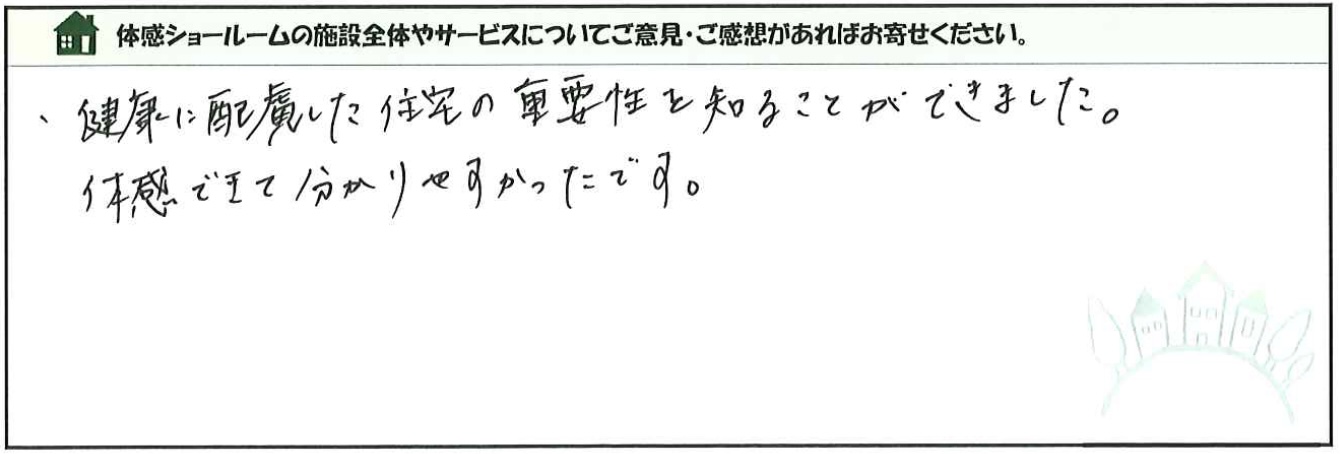 体感ショールームの施設全体やサービスについてご意見・ご感想があればお寄せください。
、健康に配慮した住宅の重要性を知ることができました。
体感できて分かりやすかったです。